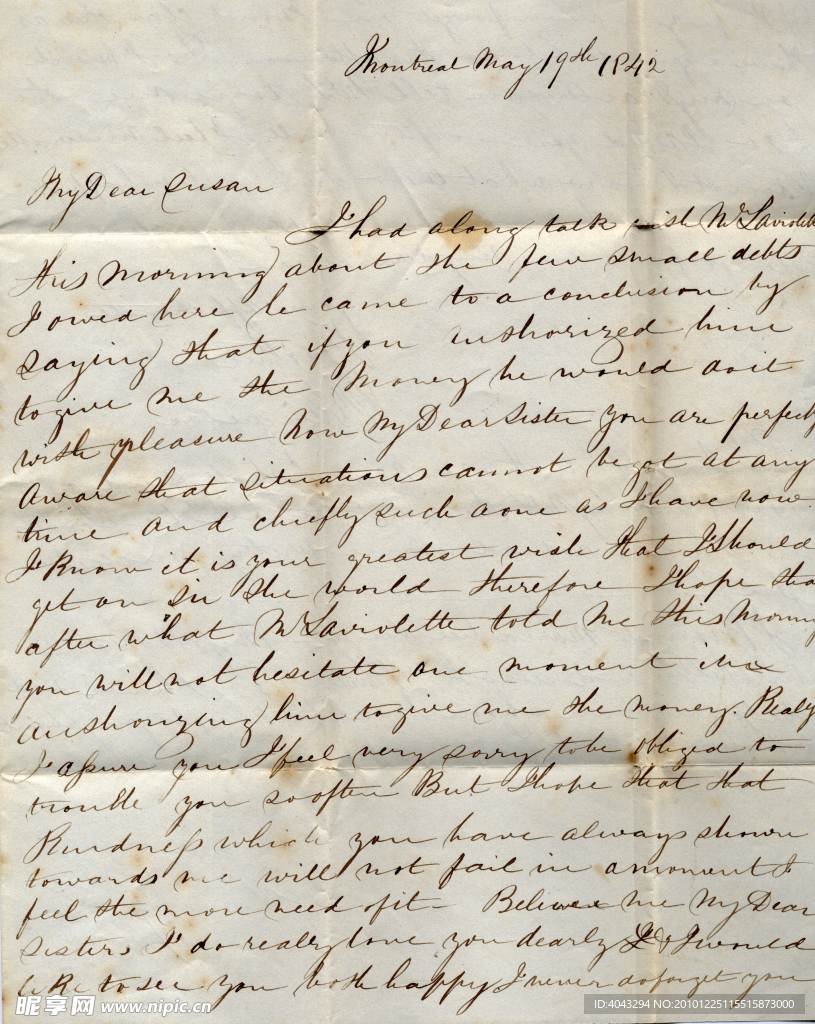 Montreal May 19th 1842
My Dear Susan
I had along talk with Mr Laviolett
this morning about the few small debts
I owed here he came to a conclusion by
saying that if you authorized him
to give me the money he would do it
with pleasure now My Dear Sister you are perfectly
aware that situations cannot be got at any
time and chiefly such a one as I have now
I know it is your greatest wish that I should
get on in the world therefore I hope tha
after what Mr Laviolette told me this morning
you will not hesitate one moment in
authorizing him to give me the money. Realy
I assure you I feel very sorry to be obliged to
trouble you so often But I hope that that
Kindness which you have always shown
towards me will not fail in a moment I
feel the more need of it - Believe me My Dear
Sister, I do realy love you dearly & I would
like to see you both happy I never do forget you
昵享网 www.nipic.cn
ID:4043294 NO:20101225115515873000